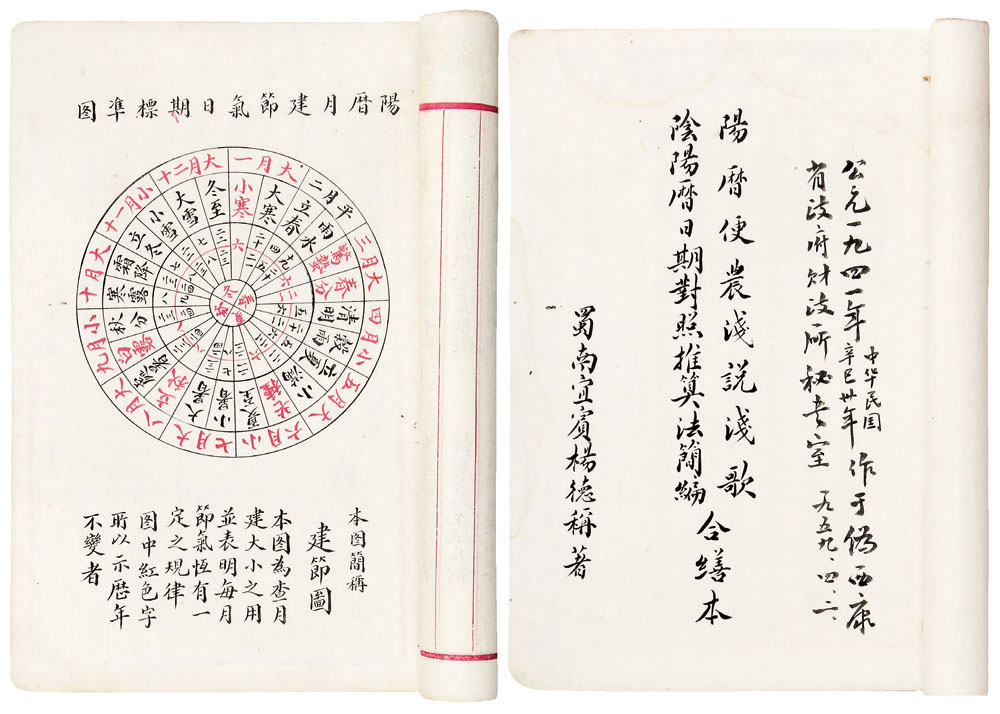 公元一九四一年 中华民国 辛巳卅年 作于偽西康
省政府财政所秘書室 一九五九、四、二、
陽暦便農淺説淺歌
陰陽暦日期對照推算法簡編 合繕本
蜀南宜賓楊德稱著
陽暦月建節氣日期標準图
一月大
二月平
三月大
四月小
五月大
六月小
七月大
八月大
九月小
十月大
十一月小
十二月大
小寒
大寒
立春
雨水
驚蟄
春分
清明
穀雨
立夏
小滿
芒種
夏至
小暑
大暑
立秋
處暑
白露
秋分
寒露
霜降
立冬
小雪
大雪
冬至
本图簡稱
建節圖
本图為查月
建大小之用
並表明每月
節氣恆有一
定之規律
图中紅色字
所以示歷年
不變者